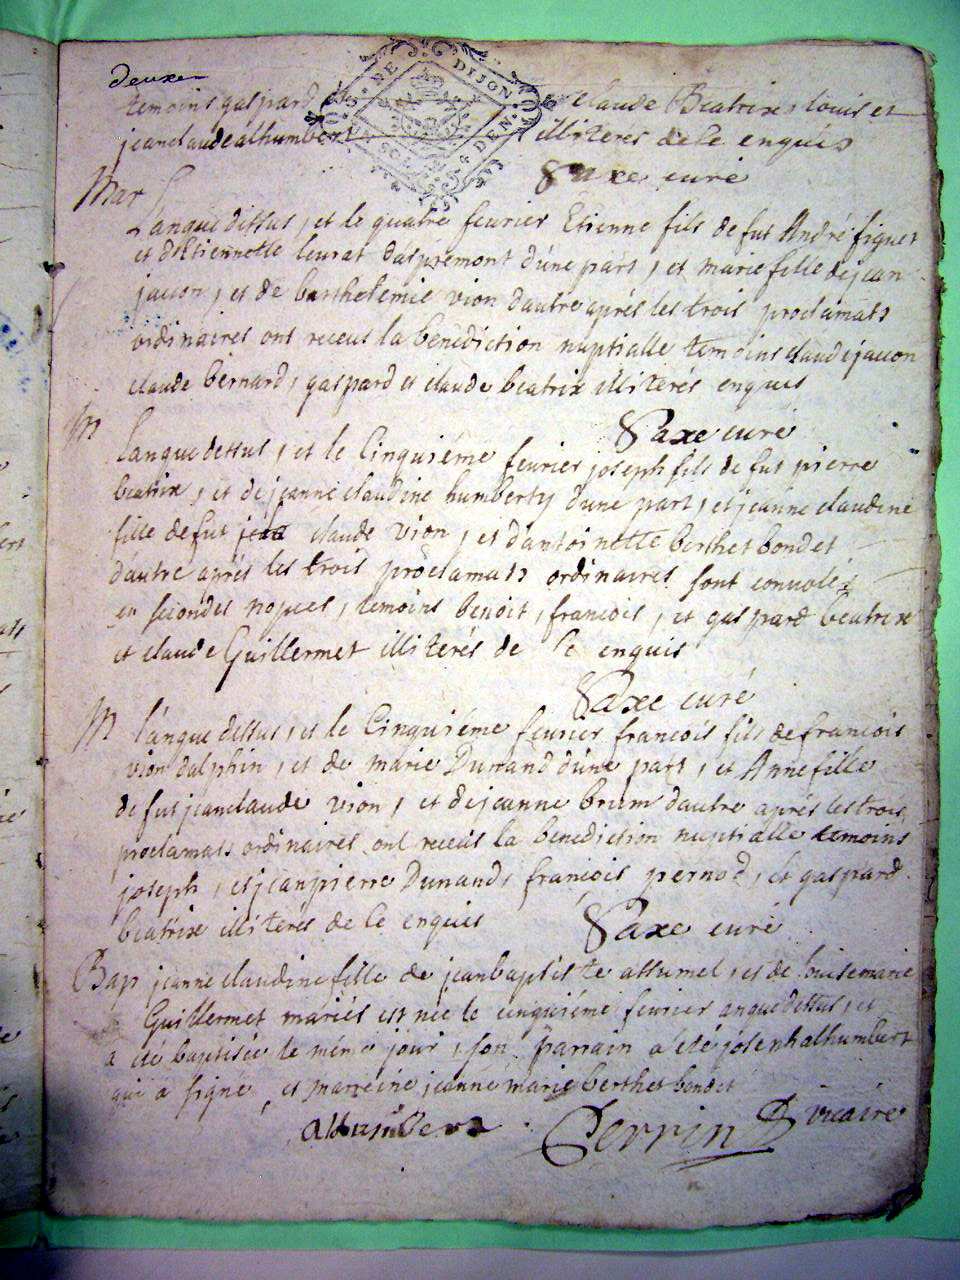 deuxe
temoins gaspard claude Beatrix, louis et
G. DE DIJON
DEN.
jeanclaude alhumbert illiterés de ce enquis
Saxe curé
Mar
L'anquedessus, et le quatre fevrier Etienne fils de fut André figuet
et d'Etiennette leurat d'aspremont d'une part, et marie fille de jean
jacon, et de barthelemie vion d'autre aprés les trois proclamats
ordinaires ont receus la bénédiction nuptialle temoins claude jacon
claude bernard, gaspard et claude beatrix illiterés enquis
Saxe curé
M
L'anquedessus, et le Cinquiéme fevrier joseph fils de fut pierre
beatrix, et de jeanne claudine humberty d'une part, et jeanne claudine
fille de fut jean claude vion, et d'antoinette berthet bondet
d'autre aprés les trois proclamats ordinaires sont convolés
en secondes nopces, temoins benoit, francois, et gaspard beatrix
et claude Guillermet illiterés de ce enquis
Saxe curé
M l'anquedessus, et le Cinquiéme fevrier francois fils de francois
vion dalphin, et de marie Durrand d'une part, et Anne fille
de fut jeanclaude vion, et de jeanne brum d'autre aprés les trois
proclamats ordinaires ont receus la benediction nuptialle temoins
joseph, et jeanpierre Dunand, francois pernod, et gaspard
beatrix illiterés de ce enquis Saxe curé
Bap jeanne claudine fille de jeanbaptiste allumel, et de louise marie
Guillermet mariés est née le cinquiéme fevrier anquedessus, et
a été baptisée le méme jour, son parrain a été joseph alhumbert
qui a signé, et marreine jeanne marie berthet bondet
alhumbert Perrin vicaire